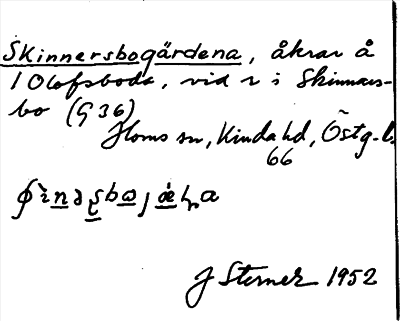 Skinnersbogärdena, åkrar å
1 Olofsboda, vid r i Skinnars-
bo (G 36)
Horns sn, Kinda hd, Östg-l.
66
J Sterner 1952